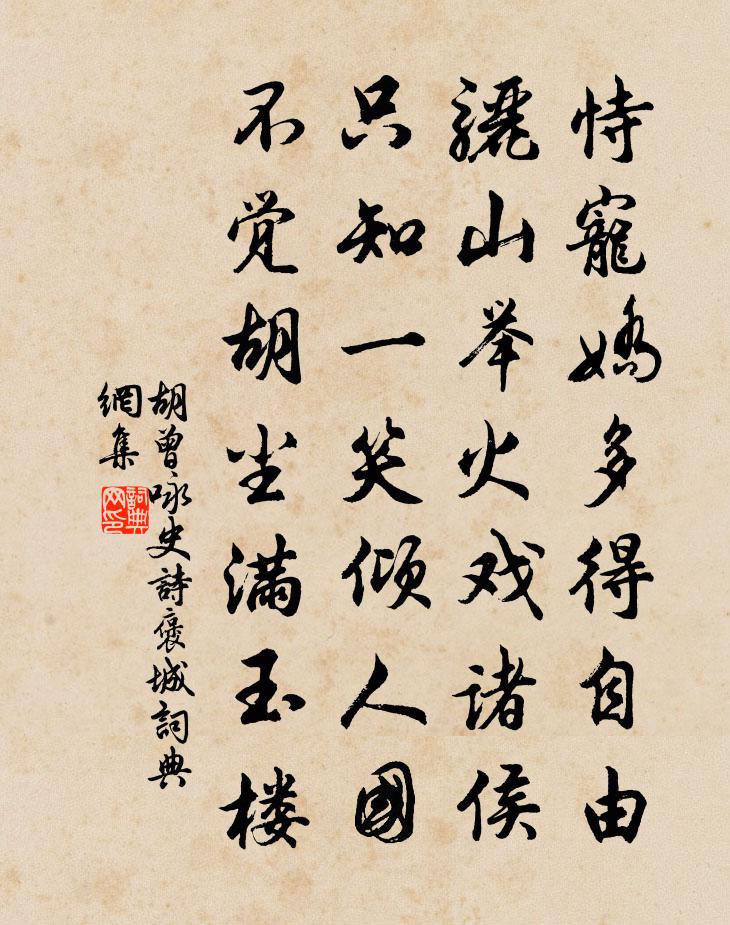 恃寵嬌多得自由
驪山举火戏諸侯
只知一笑傾人國
不觉胡尘满玉楼
胡曾咏史詩褒城詞典
網集
詞典
网印